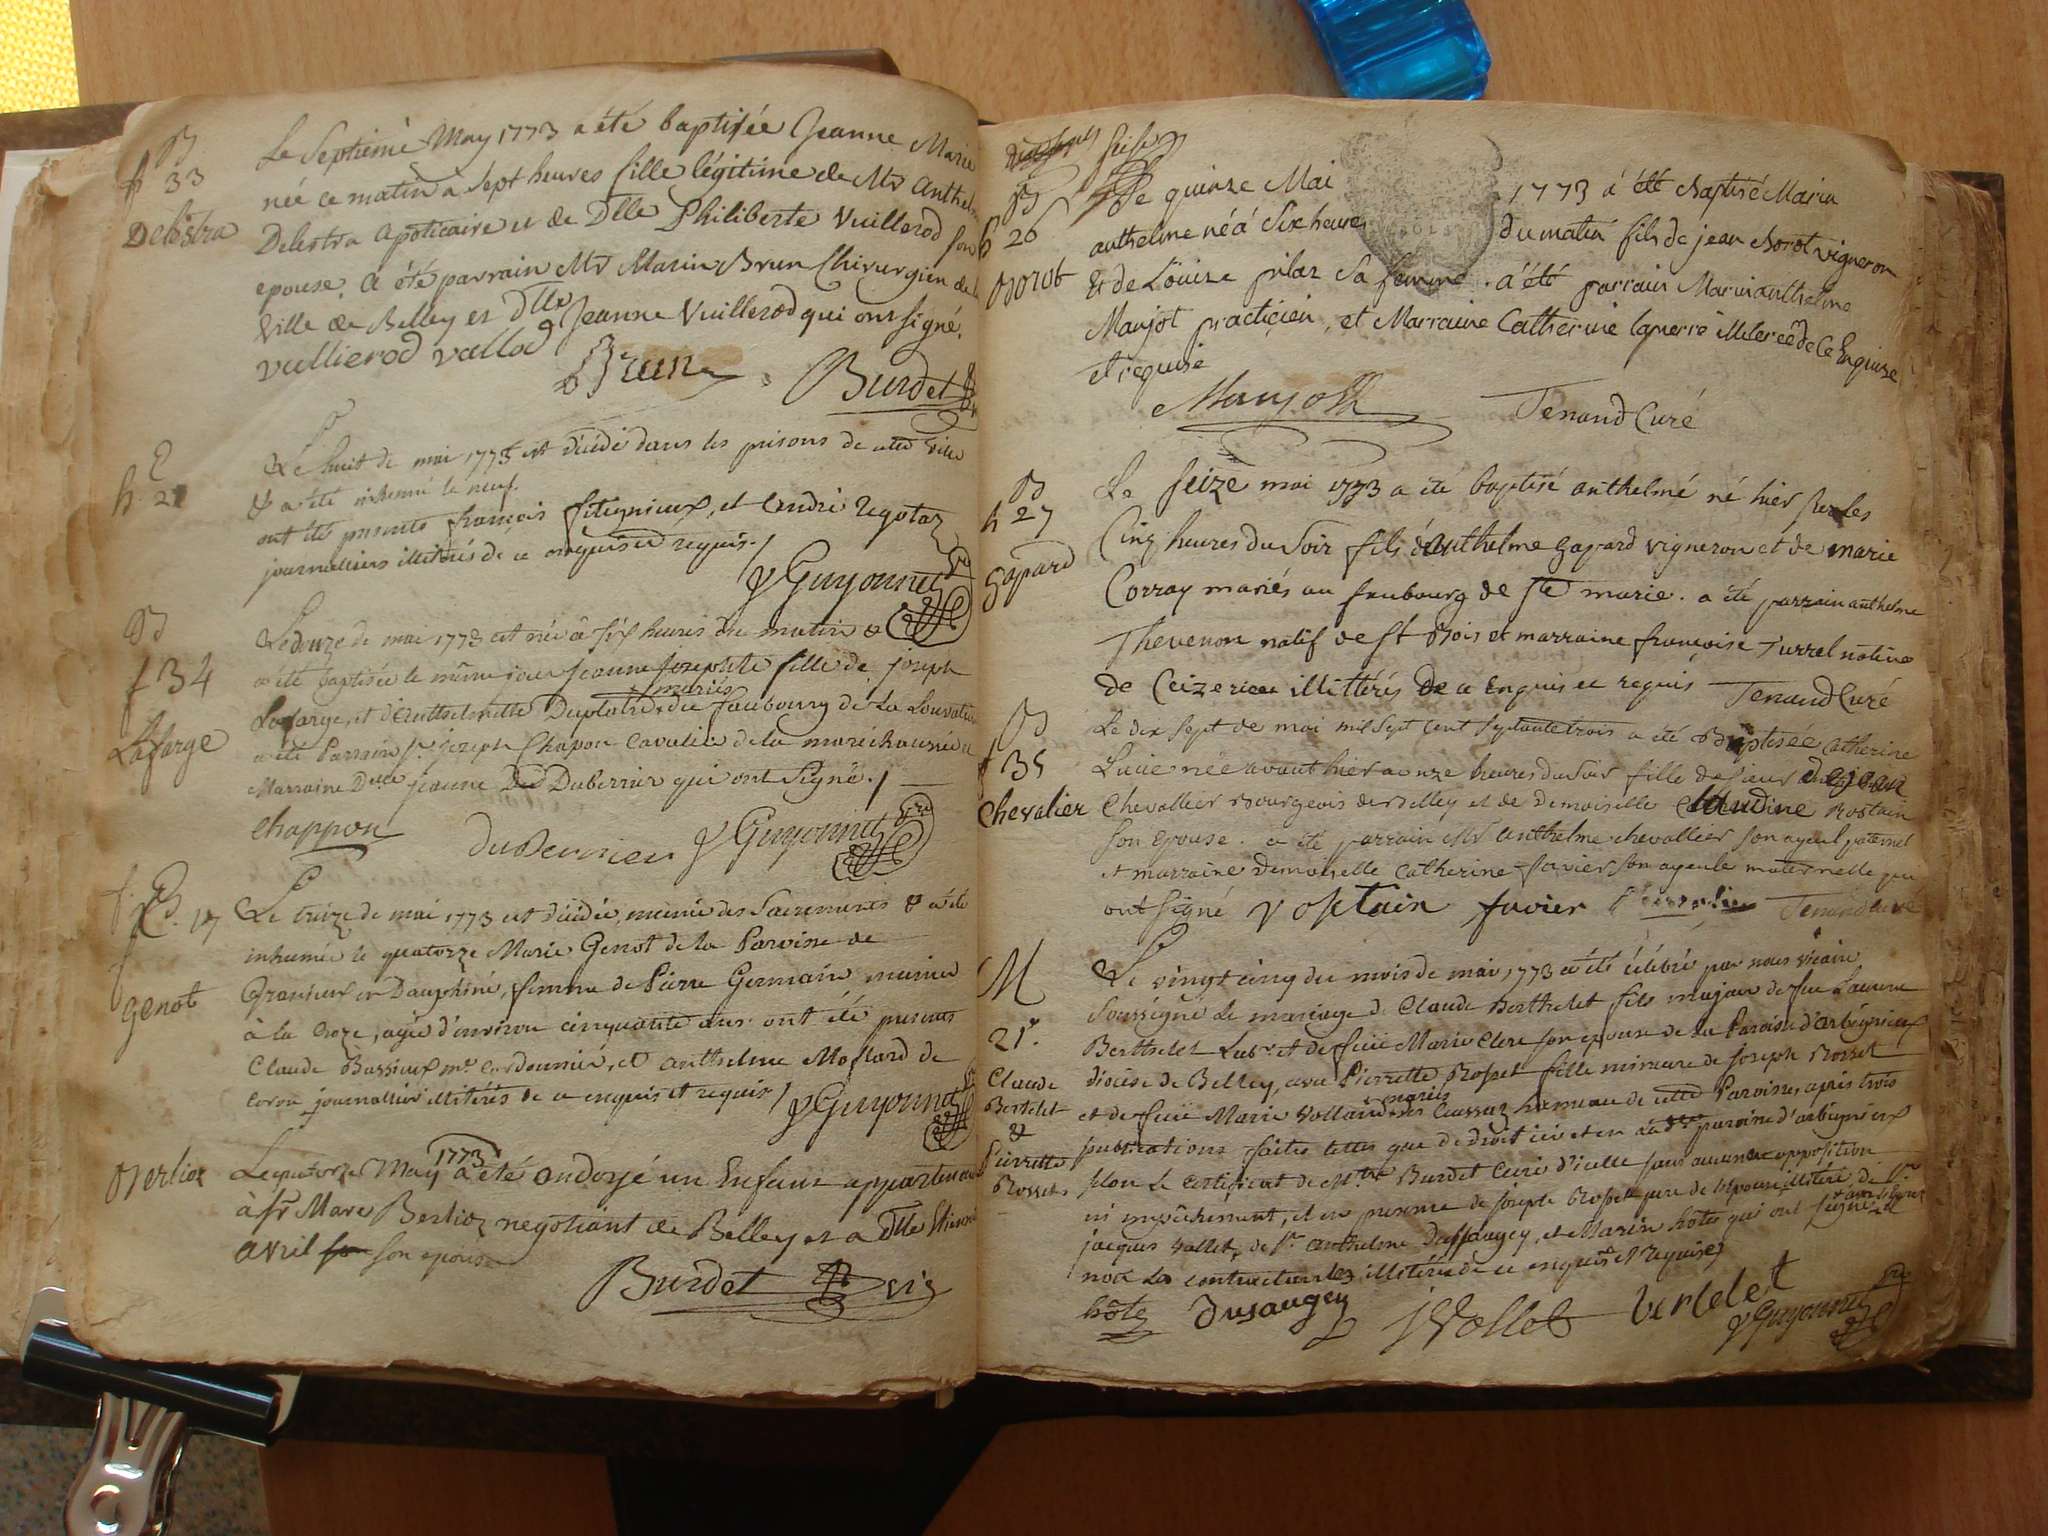 B
f 33
Delestra
Le Septième May 1773 a été baptisée Jeanne Marie
née ce matin a sept heures fille légitime de Mr Anthelme
Delestra Apoticaire et de Dlle Philiberte Vuillerod son
epouse. a été parrain Mr Marin Brun Chirurgien de la
Ville de Belley et Dlle Jeanne Vuillerod qui ont signé.
vullierod vallod Brun Burdet
h 21
Le huit de mai 1773 est décédé dans les prisons de cette ville
& a été inhumé le neuf.
ont été présents françois fitignieux, et André
journaliers illitérés de ce enquis et requis.
Guyonnet
B
f 34
Lafarge
Le douze de mai 1773 est née à six heures du matin &
a été baptisée le même jour jeanne josephte fille de joseph
mariés
Lafarge, et d'Anthelmette du faubourg de La Louvatière
a été Parrain Sr. joseph Chapon Cavalier de la maréchaussée et
Marraine Dlle jeanne Duberrier qui ont signé.
Chappon duBerrier Guyonnet
f. 17
genot
Le treize de mai 1773 est décédée, munie des Sacrements & a été
inhumée le quatorze Marie Genot de la Paroisse de
en Dauphiné, femme de Pierre Germain, munier
à la Croze, agée d'environ cinquante ans. ont été présents
Claude Bussieux me. cordonnier, et anthelme Mollard de
journallier illitérés de ce enquis et requis
Guyonnet
Berlioz
1773
Le quatorze May a été ondoyé un Enfant appartenant
à Sr Marc Berlioz negotiant de Belley et a Dlle
avril son epouse
Burdet vic
seise
B
h 26
Borot
Le quinze Mai 1773 a été Baptisé Marin
anthelme né à Six heures du matin fils de jean Borot vigneron
Et de Loüize pilaz Sa femme. a été parrain Marin anthelme
Maujot practicien, et Marraine Catherine laperre illiterée de Ce Enquize
et requise
Maujot Tenand Curé
B
h 27
Gapard
Le seize mai 1773 a été baptisé anthelme né hier sur les
Cinq heures du Soir fils d'anthelme Gapard vigneron et de marie
Corray mariés au faubourg de Ste marie. a été parrain anthelme
Thevenon natif de St Bois et marraine françoise Turrel native
de Ceizerieu illittérés de ce Enquis et requis Tenand Curé
B
f 35
Chevalier
Le dix sept de mai mil sept cent septante trois a été Baptisée Catherine
Lucie née avant hier a onze heures du soir fille de sieur dejean
Chevallier Bourgeois de Belley et de demoiselle Claudine Rostain
son epouse. a été parrain Mr anthelme chevallier son ayeul paternel
et marraine demoiselle catherine favier son ayeule maternelle qui
ont signé Rostain favier Chevalier Tenand Curé
M
21e.
Claude
Bertelet
&
Pierrette
Rosset
Le vingt cinq du mois de mai 1773 a été célébré par nous vicaire
soussigné Le mariage de Claude Berthelet fils majeur de feu Laurent
Berthelet Labr. et de feüe Marie Clere son épouse de la Paroisse d'arbignieux
diocèse de Belley, avec Pierrette Rosset fille mineure de Joseph Rosset
mariés
et de feüe Marie Volland de hameau de cette Paroisse, après trois
publications faites telles que de droit ici et en paroisse d'arbignieux
selon Le certificat de Mre Burdet Curé d'icelle sans aucune opposition
ni empêchement, et en presence de joseph Rosset pere de l'épouse illitéré, de Sr.
jacques Vallet, de Sr. anthelme Dussaugey, et Marin hôte qui ont signé
non La contractante illitérée de ce enquise et requise
hôte Dusaugey J Vollet berlelet Guyonnet